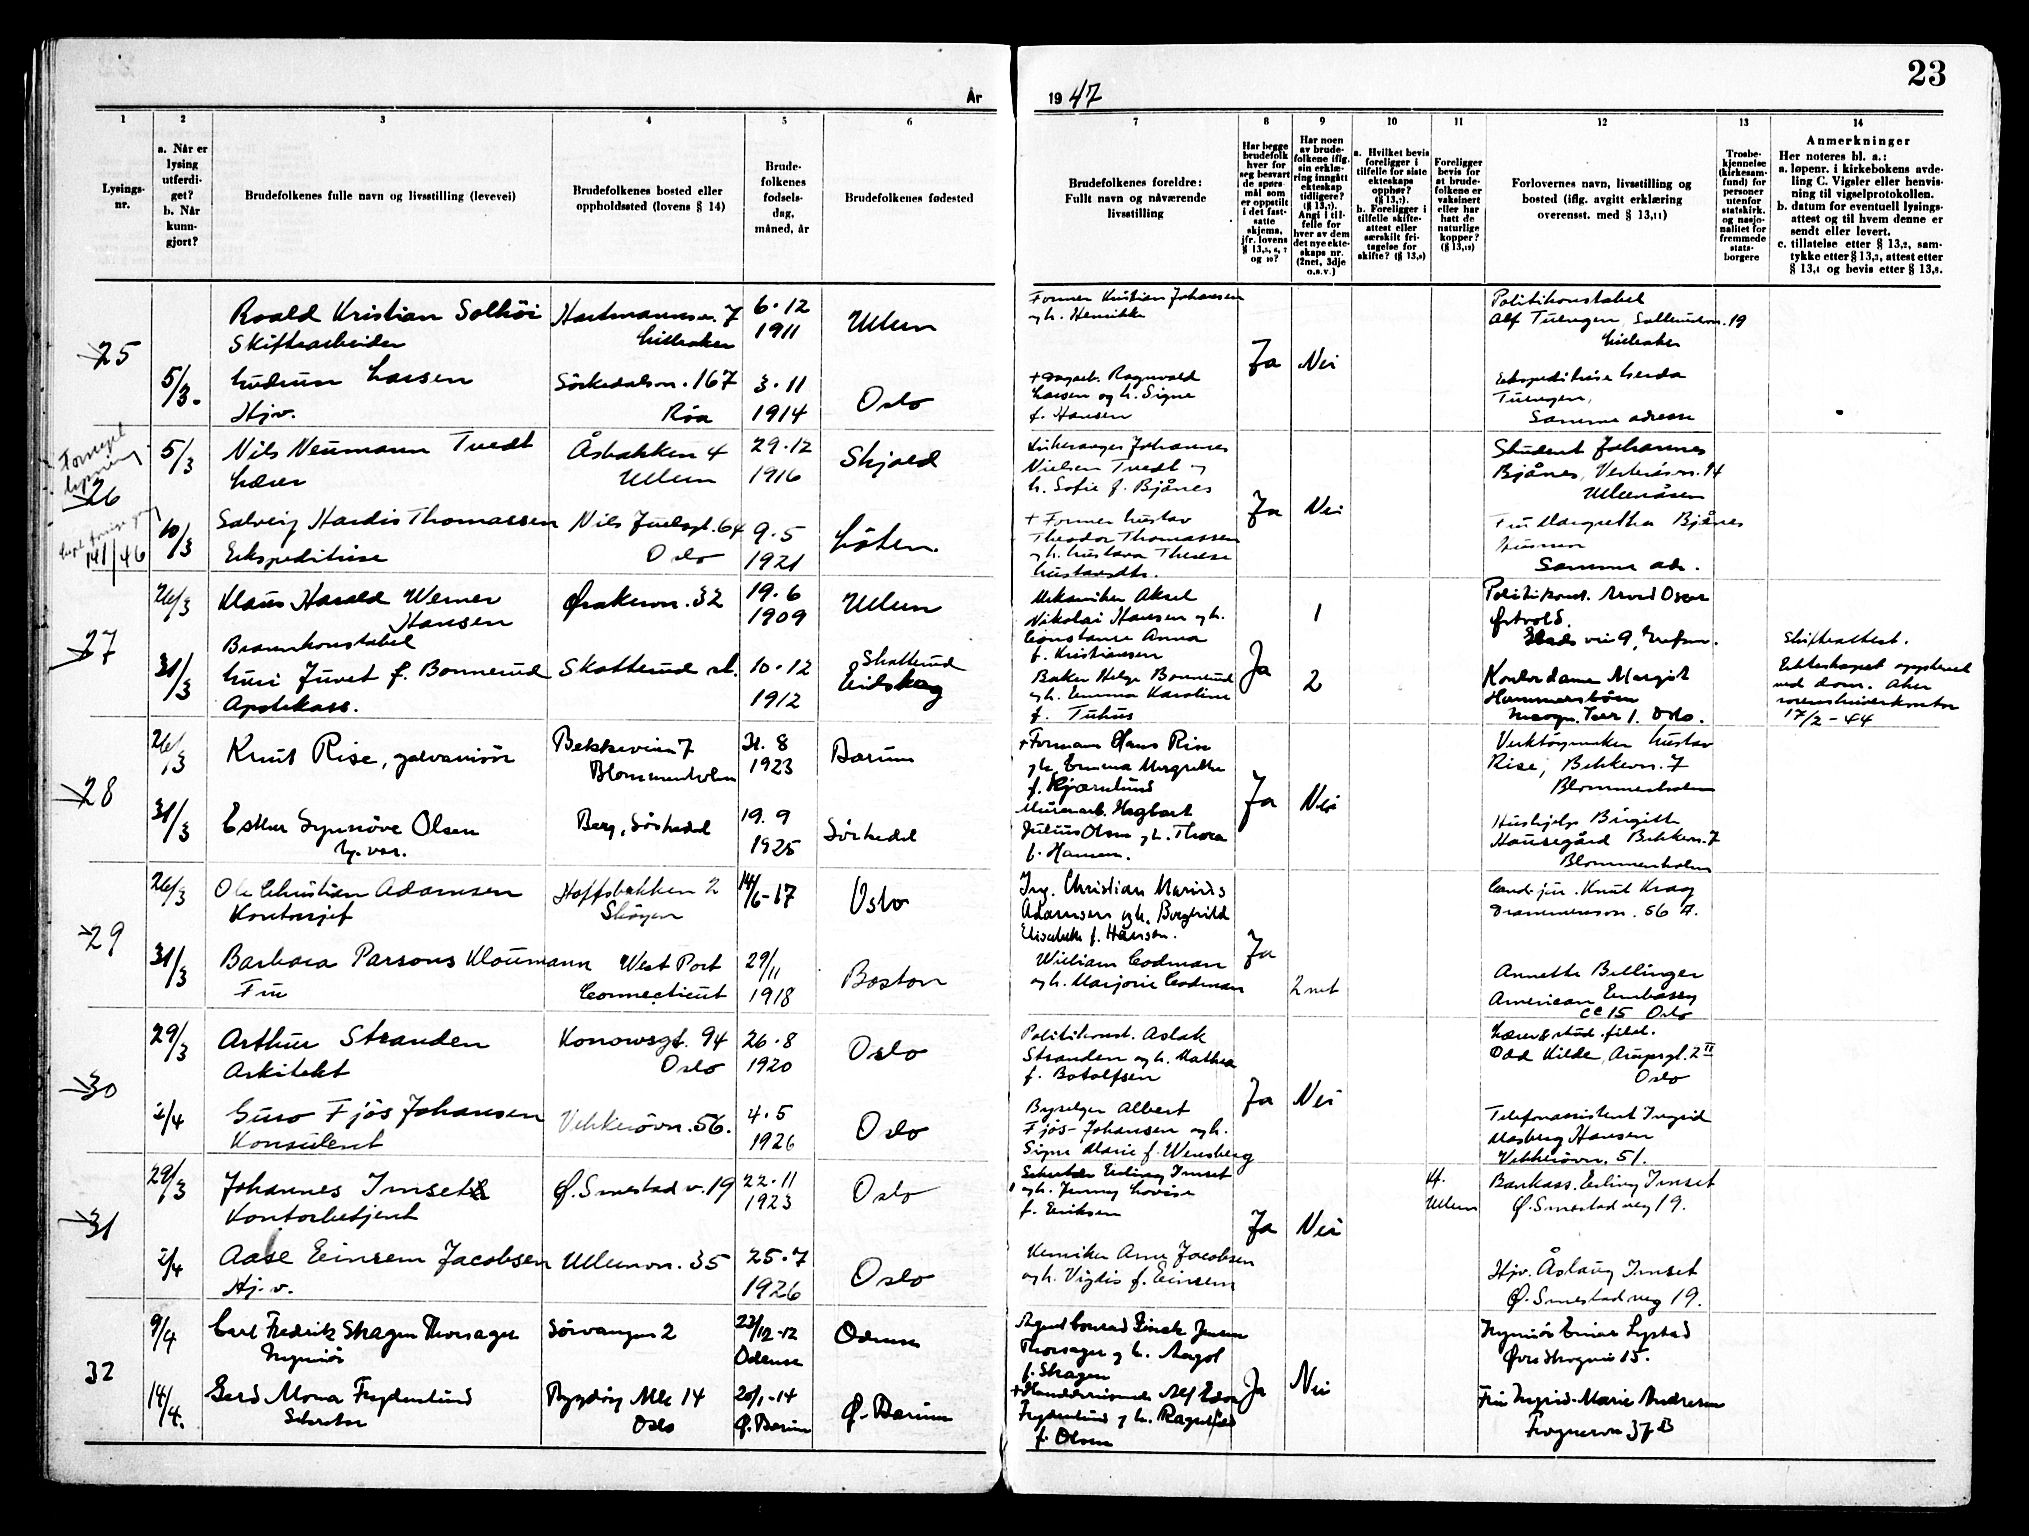 23
År
19 47
1
2
3
4
5
6
7
8
9
10
11
12
13
14
Lysings-
nr.
a. Når er
lysing
utferdi-
get?
b. Når
kunn-
gjort?
Brudefolkenes fulle navn og livsstilling (levevei)
Brudefolkenes bosted eller
oppholdssted (lovens § 14)
Brude-
folkenes
fødsels-
dag,
måned, år
Brudefolkenes fødested
Brudefolkenes foreldre:
Fullt navn og nåværende
livsstilling
Har begge
brudefolk
hver for
seg besvart
de spørs-
mål som
er oppstilt
i det fast-
satte
skjema,
jfr. lovens
og 10?
Har noen
av brude-
folkene iflg.
sin erklæ-
ring inngått
ekteskap
tidligere?
Angi i til-
felle for
hver av dem
det nye ekte-
skaps nr.
(2net, 3dje
o.s.v.)
a. Hvilket bevis
foreligger i
tilfelle for siste
ekteskaps
opphør?
b. Foreligger i
tilfelle skifte-
attest eller
særskilt fri-
tagelse for
skifte?
Foreligger
bevis for
at brude-
folkene er
vaksinert
eller har
hatt de
naturlige
kopper?
Forlovernes navn, livsstilling og
bosted (iflg. avgitt erklæring
overensst. med § 13,11)
Trosbe-
kjennelse
(kirkesam-
fund) for
personer
utenfor
statskirk.
og nasjo-
nalitet for
fremmede
stats-
borgere
Anmerkninger
Her noteres bl. a.:
a. løpenr. i kirkebokens avde-
ling C. Vigsler eller henvis-
ning til vigselprotokollen.
b. datum for eventuell lysings-
attest og til hvem denne er
sendt eller levert.
c. tillatelse etter § 13,2, sam-
tykke etter § 13,3, attest etter
§ 13,4 og bevis etter § 13,8.
25
Roald Kristian Solhöi
Skiftearbeider
Lilleaker
6.12
1911
Ullern
5/3.
Gudrun Larsen
Hjv.
Sörkedalsvn. 167
Röa
3.11
1914
Oslo
Former Kristian Johansen
og h. Henrikke
Larsen og h. Signe
f. Hansen
Ja
Nei
Politikonstabel
Lilleaker
Samme adresse
Fornyet
lysning
26
141/46
5/3
Nils Neumann Tvedt
Lærer
Åsbakken 4
Ullern
29.12
1916
Skjold
10/3
Solveig Hardis Thomassen
Ekspeditrise
Nils Juelsgt. 64
Oslo
9.5
1921
Löten.
Kirkesanger Johannes
Nielsen Tvedt og
h. Sofie f. Bjånes
+ Former Gustav
Theodor Thomassen
og h. Gustava Therese
Gustavsdtr.
Ja
Nei
Student Johannes
Bjånes, Vesteråsvn. 14
Ullernåsen
Fru Margretha Bjånes
Husmor
Samme adr.
27
26/3
Klaus Harald Werner
Hansen
Brannkonstabel
Ørakervn. 32
19.6
1909
Ullern
31/3
Guri Juvet f. Bonnerud
Apotekass.
Skotterud st.
10.12
1912
Skotterud
Eidskog
Mekaniker Aksel
Nikolai Hansen og h.
Constance Anna
f. Kristiansen
Baker Helge Bonnerud
og h. Emma Karoline
f. Tuhus
Ja
1
2
Politikonst. Arvid Oscar
Kontordame Margit
Skifteattest.
17/2 - 44
28
26/3
Knut Rise, galvanisör
Bekkeveien 7
Blommenholm
31.8
1923
Bærum
31/3
Esther Synnöve Olsen
Berg, Sörkedal
19.9
1925
Sörkedal
+ Formann Hans Rise
og h. Emma Margrethe
f. Kjærnlund
Murerarb. Hagbart
Julius Olsen og h. Thora
f. Hansen.
Ja
Nei
Verktöymaker Gustav
Rise, Bekkevn. 7
Blommenholm
Hushjelp Birgitte
Haugegård Bekkevn. 7
Blommenholm
29
26/3
Ole Christian Adamsen
Kontorsjef
Hoffsbakken 2
Sköyen
14/6-17
Oslo
31/3
Barbara Parsons Kloumann
Fru
West Port
Connecticut
29/11
1918
Boston
Ing. Christian Marius
Adamsen og h. Borghild
Elisabeth f. Hansen.
William Codman
og h. Marjorie Codman
Ja
2 net
Cand. jur. Knut Krag
Drammensvn. 56 A.
Annette Bellinger
American Embassy
Oslo
30
29/3
Arthur Stranden
Arkitekt
Konowsgt. 94
Oslo
26.8
1920
Oslo
2/4
Guro Fjös Johansen
Konsulent
Vekkerövn. 56.
4.5
1926
Oslo
Politikonst. Aslak
Stranden og h. Mathea
f. Botolfsen
Byselger Albert
Fjös-Johansen og h.
Signe Marie f. Wensberg
Ja
Nei
Lærer & stud. filol.
Odd Kilde, Arupsgt. 2 II
Oslo
Telefonassistent Ingrid
Masberg Hansen
Vekkerövn. 51.
31
29/3
Johannes Imset
Kontorbetjent
Ø. Smestad v. 19
22.11
1923
Oslo
2/4
Aase Einsem Jacobsen
Hj. v.
Ullernvn. 35
25.7
1926
Oslo
og h. Jenny Lovise
f. Eriksen
Kemiker Arne Jacobsen
og h. Vigdis f. Einsem
Ja
Nei
H.
Ullern
Bankass. Erling Imset
Ø. Smestad veg 19.
Hjv. Åslaug Imset
Ø. Smestad veg 19.
32
9/4
Carl Fredrik Skagen Thorsager
Ingeniör
Sörvangen 2
23/12-12
Odense
Odense
14/4.
Gerd Mona Frydenlund
Sekretær
Bygdöy Alle 14
Oslo
20/1-14
Ø. Bærum
Ø. Bærum
Thorsager og h. Aagot
f. Skagen
Frydenlund og h. Ragnhild
f. Olsen
Ja
Nei
Ingeniör Einar Lystad
Fru Ingrid-Marie Andresen
Frognervn 37 B